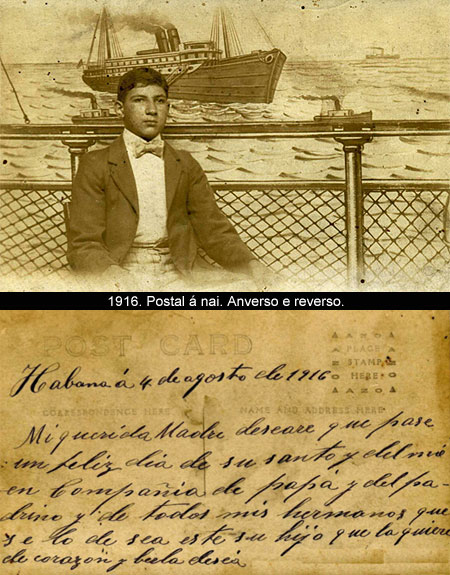 1916. Postal á nai. Anverso e reverso.
POST CARD
AZO
PLACE
STAMP
HERE
AZO
Habana á 4 de agosto de 1916
CORRESPONDENCE HERE
NAME AND ADDRESS HERE
Mi querida Madre deseare que pase
un feliz dia de su santo y del mio
en Compañia de papá y del pa-
drino y de todos mis hermanos que
se lo de sea este su hijo que la quiere
de corazón y